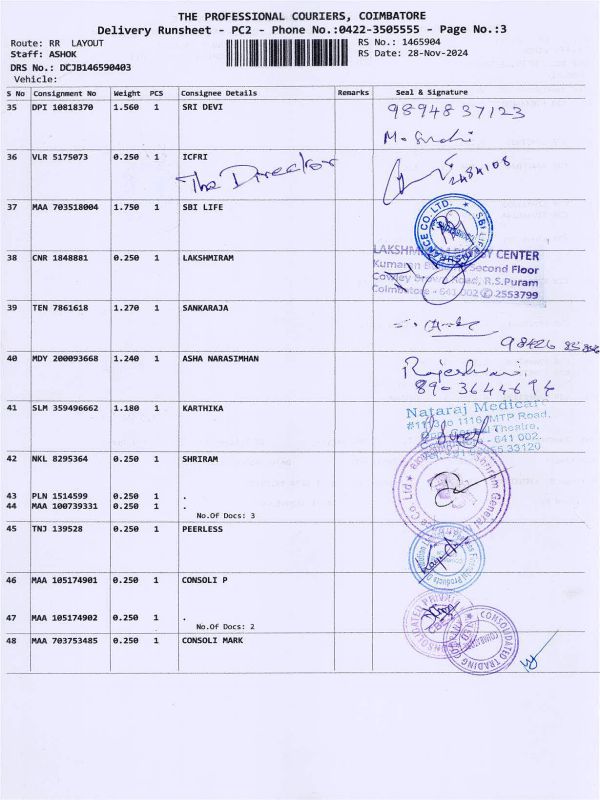 THE PROFESSIONAL COURIERS, COIMBATORE
Delivery Runsheet - PC2 - Phone No.:0422-3505555 - Page No.:3
Route: RR LAYOUT
RS No.: 1465904
Staff: ASHOK
RS Date: 28-Nov-2024
DRS No.: DCJB146590403
Vehicle:
S No Consignment No Weight PCS Consignee Details Remarks Seal & Signature
35 DPI 10818370 1.560 1 SRI DEVI 9894837123
36 VLR 5175073 0.250 1 ICFRI
The Director 2484108
37 MAA 703518004 1.750 1 SBI LIFE
SBI LIFE INSURANCE CO. LTD.
38 CNR 1848881 0.250 1 LAKSHMIRAM
CENTER
Second Floor
Road, R.S.Puram
Coimbatore - 641 002 2553799
39 TEN 7861618 1.270 1 SANKARAJA
98426
40 MDY 200093668 1.240 1 ASHA NARASIMHAN
Rajeshwari
89-3644694
41 SLM 359496662 1.180 1 KARTHIKA
Nataraj Medicare
MTP Road,
Theatre,
- 641 002.
33120
42 NKL 8295364 0.250 1 SHRIRAM
Shriram General
43 PLN 1514599 0.250 1 .
44 MAA 100739331 0.250 1 .
No.Of Docs: 3
45 TNJ 139528 0.250 1 PEERLESS
46 MAA 105174901 0.250 1 CONSOLI P
47 MAA 105174902 0.250 1 .
No.Of Docs: 2
48 MAA 703753485 0.250 1 CONSOLI MARK
CONSOLIDATED TRADING